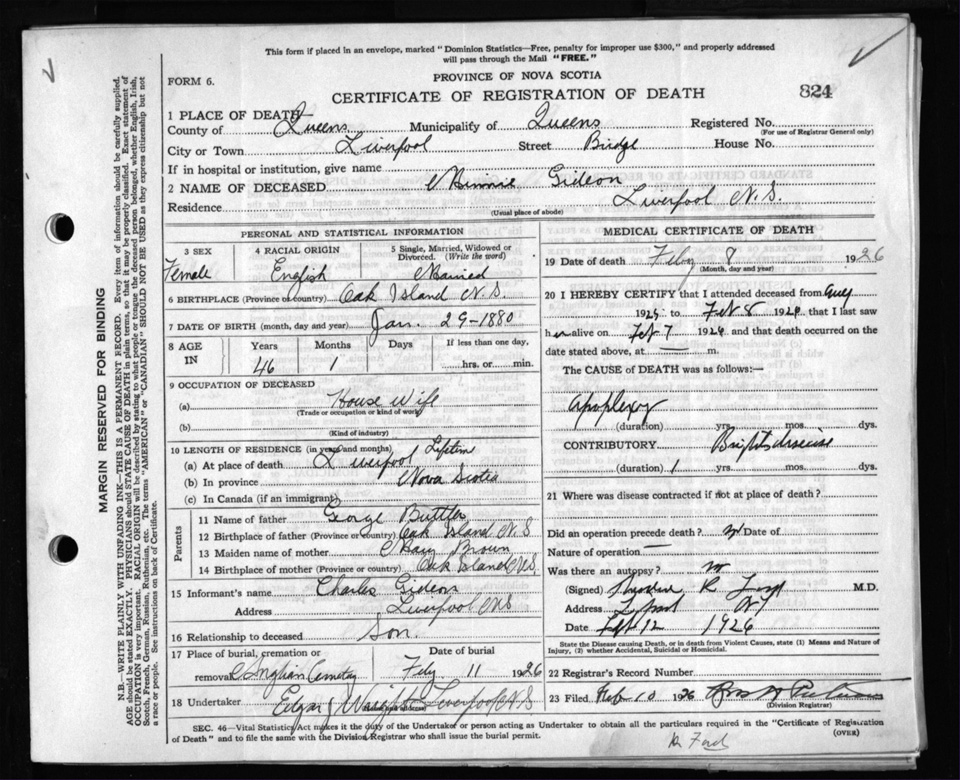 This form if placed in an envelope, marked "Dominion Statistics—Free, penalty for improper use $300," and properly addressed
will pass through the Mail "FREE."
FORM 6.
PROVINCE OF NOVA SCOTIA
CERTIFICATE OF REGISTRATION OF DEATH
824
1 PLACE OF DEATH
County of Queens Municipality of Queens Registered No.
(For use of Registrar General only)
City or Town Liverpool Street Bridge House No.
If in hospital or institution, give name
2 NAME OF DECEASED Minnie Gideon
Residence Liverpool N.S.
(Usual place of abode)
PERSONAL AND STATISTICAL INFORMATION
3 SEX 4 RACIAL ORIGIN 5 Single, Married, Widowed or Divorced. (Write the word)
Female English Married
6 BIRTHPLACE (Province or country) Oak Island N.S.
7 DATE OF BIRTH (month, day and year) Jan. 29-1880
8 AGE IN Years Months Days If less than one day,
46 1 hrs. or min.
9 OCCUPATION OF DECEASED
(a) House Wife
(Trade or occupation or kind of work)
(b)
(Kind of industry)
10 LENGTH OF RESIDENCE (in years and months)
(a) At place of death Liverpool Lifetime
(b) In province Nova Scotia
(c) In Canada (if an immigrant)
Parents
11 Name of father George Buttler
12 Birthplace of father (Province or country) Oak Island N.S
13 Maiden name of mother Mary Brown
14 Birthplace of mother (Province or country) Oak Island N.S.
15 Informant's name Charles Gideon
Address Liverpool N S
16 Relationship to deceased Son.
17 Place of burial, cremation or removal Date of burial
Anglian Cemetery Feby 11 1926
18 Undertaker Edgar J Wright Liverpool N.S
MEDICAL CERTIFICATE OF DEATH
19 Date of death Feby 8 1926
(Month, day and year)
20 I HEREBY CERTIFY that I attended deceased from Aug
1925 to Feb 8 1926, that I last saw
her alive on Feb 7 1926 and that death occurred on the
date stated above, at — m.
The CAUSE of DEATH was as follows:—
Apoplexy
(duration) yrs. mos. dys.
CONTRIBUTORY Brights disease
(duration) 1 yrs. mos. dys.
21 Where was disease contracted if not at place of death?
Did an operation precede death? no Date of
Nature of operation —
Was there an autopsy? no
(Signed) R M.D.
Address
Date 12 1926
State the Disease causing Death, or in death from Violent Causes, state (1) Means and Nature of
Injury, (2) whether Accidental, Suicidal or Homicidal.
22 Registrar's Record Number
23 Filed Feb 10 1926
(Division Registrar)
SEC. 46—Vital Statistics Act makes it the duty of the Undertaker or person acting as Undertaker to obtain all the particulars required in the "Certificate of Registration
of Death" and to file the same with the Division Registrar who shall issue the burial permit. (OVER)
Dr Ford
MARGIN RESERVED FOR BINDING
N.B.—WRITE PLAINLY WITH UNFADING INK—THIS IS A PERMANENT RECORD. Every item of information should be carefully supplied.
AGE should be stated EXACTLY. PHYSICIANS should STATE CAUSE OF DEATH in plain terms, so that it may be properly classified. Exact statement of
OCCUPATION is very important. RACIAL ORIGIN will be described by stating to what people or tongue the deceased person belonged, whether English, Irish,
Scotch, French, German, Russian, Ruthenian, etc. The terms "AMERICAN" or "CANADIAN" SHOULD NOT BE USED as they express citizenship but not
a race or people. See instructions on back of Certificate.